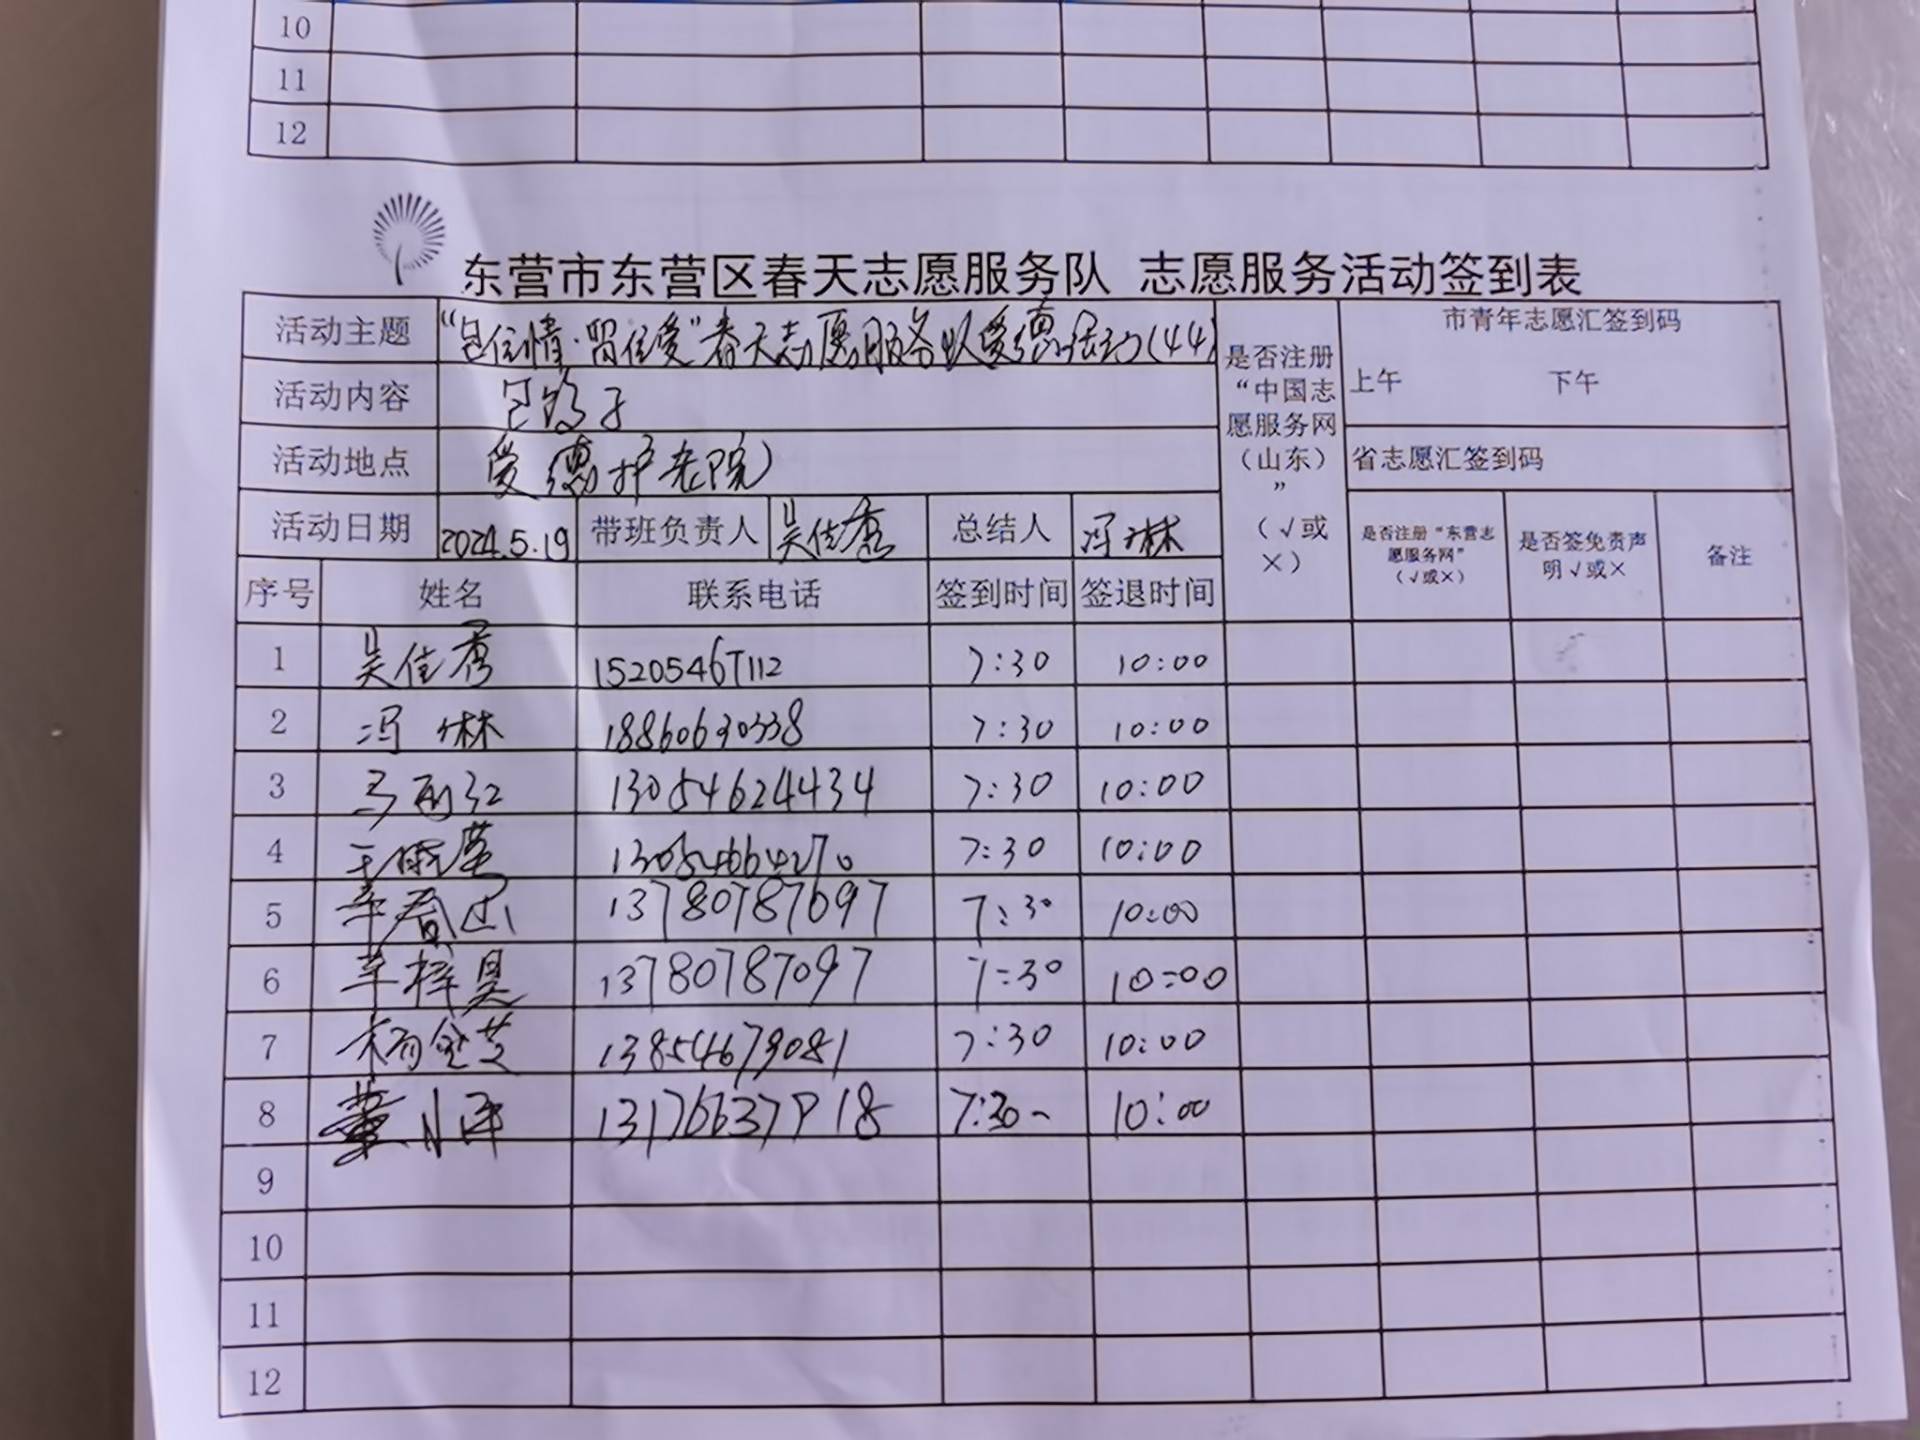 10
11
12
东营市东营区春天志愿服务队 志愿服务活动签到表
活动主题 “包住情·留住爱”春天志愿服务队爱德活动(44)
是否注册“中国志愿服务网（山东）”（√或×）
市青年志愿汇签到码
上午 下午
活动内容 包饺子
活动地点 爱德护老院
省志愿汇签到码
活动日期 2024.5.19 带班负责人 吴佳秀 总结人 冯琳
是否注册“东营志愿服务网”（√或×） 是否签免责声明√或× 备注
序号 姓名 联系电话 签到时间 签退时间
1 吴佳秀 15205467112 7:30 10:00
2 冯琳 18860630338 7:30 10:00
3 13054624434 7:30 10:00
4 13054664270 7:30 10:00
5 13780787697 7:30 10:00
6 13780787097 7:30 10:00
7 13854679081 7:30 10:00
8 董 7:30 10:00
9
10
11
12